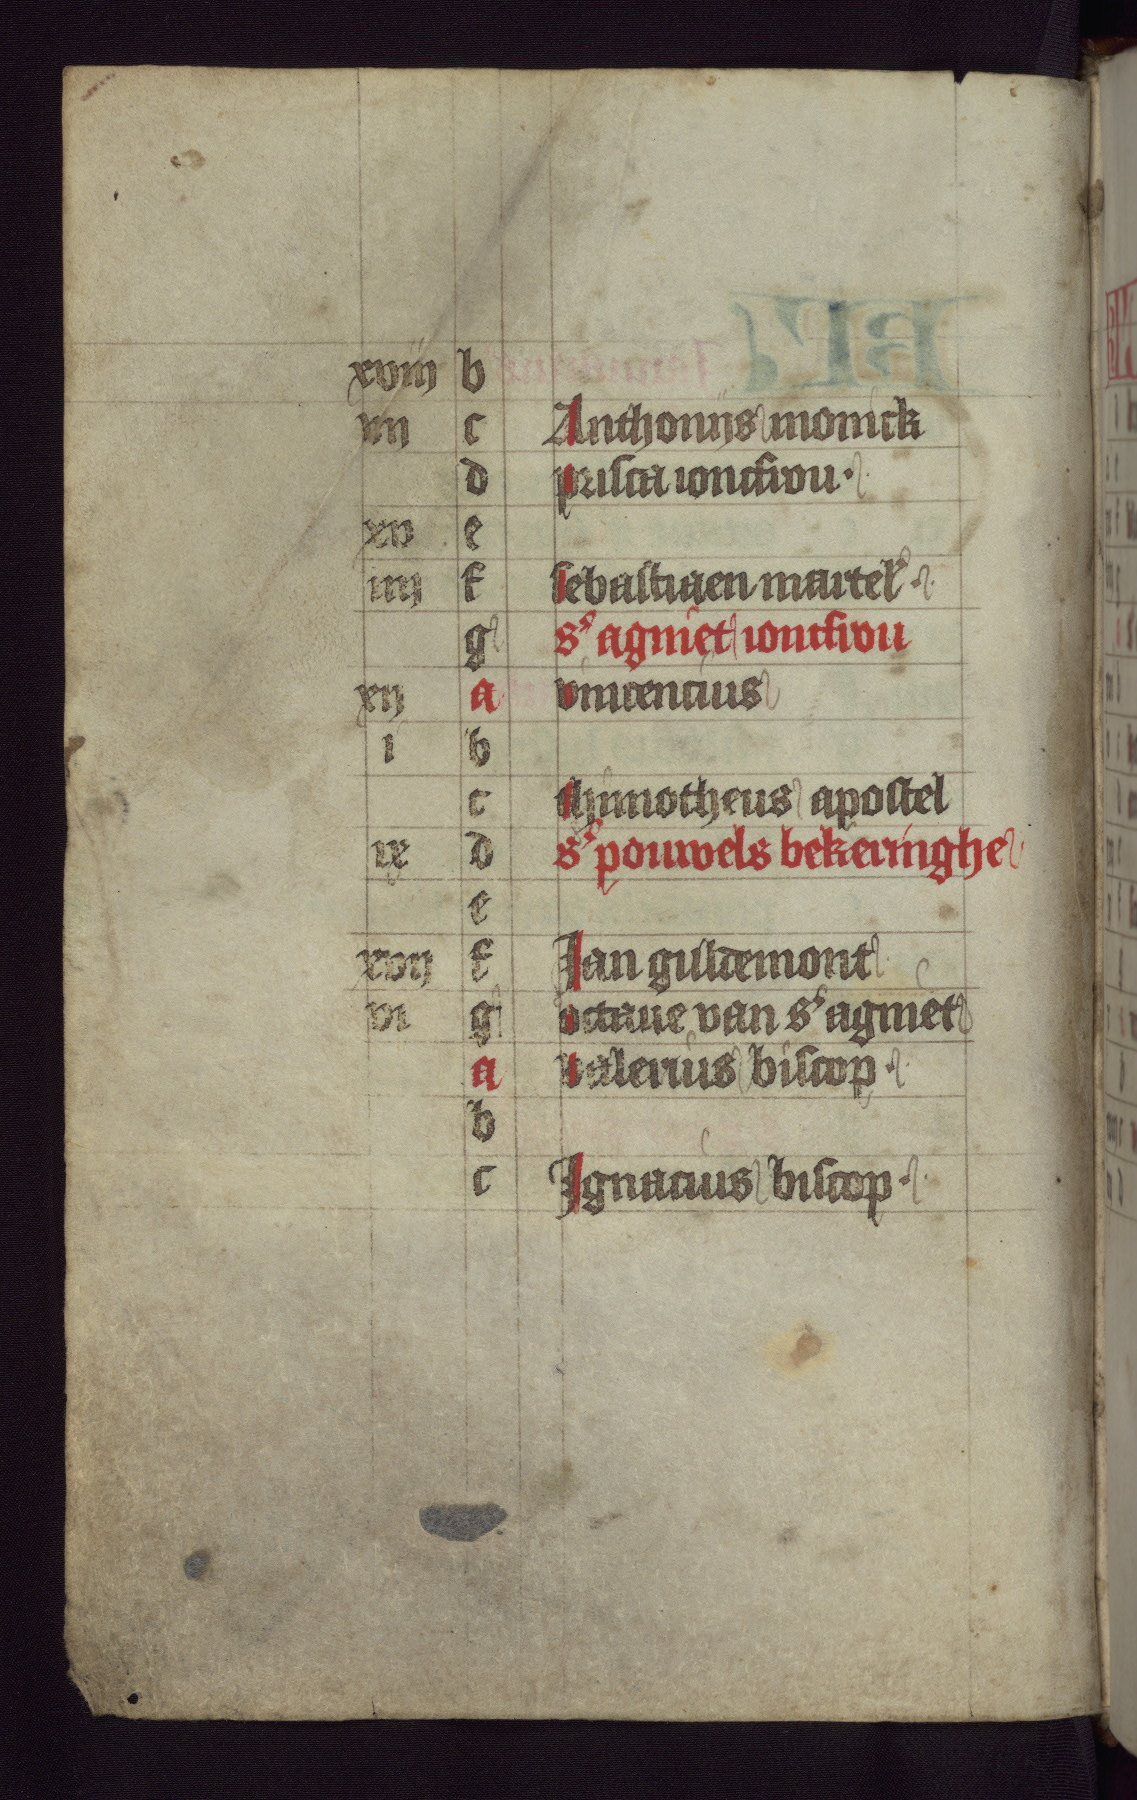 xviij b
vij c Anthonijs monick
d prisca ioncfrou
xv e
iiij f sebastiaen martel'
g s' agniet ioncfrou
xij a vincencius
i b
c thimotheus apostel
ix d s' pouwels bekeringhe
e
xvij f Jan guldemont
vi g octaue van s' agniet
a valerius biscop
b
c Ignacius biscop